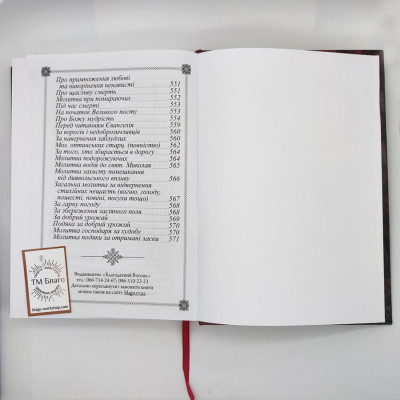 Про примноження любові
та викорінення ненависті 551
Про щасливу смерть 551
Молитва при помираючих 552
Під час смерті 553
На початок Великого посту 553
Про Божу мудрість 554
Перед читанням Євангелія 559
За ворогів і недоброзичливців 560
За навернення заблудлих 560
Мол. оптинських стар. (повністю) 562
За того, хто збирається в дорогу 564
Молитва подорожуючих 564
Молитва водія до свят. Миколая 563
Молитва захисту помешкання
від диявольського впливу 566
Загальна молитва за відвернення
стихійних нещасть (вогню, голоду,
пошесті, повені, посухи тощо) 567
За гарну погоду 568
За збереження засіяного поля 568
За добрий урожай 569
Подяка за добрий урожай 570
Молитва господаря за худобу 570
Молитва подяки за отримані ласки 571
Видавництво «Благодатний Вогонь»
тел.: 066-714-24-67, 096-510-23-23
Детально переглянути і замовити книги
можна також на сайті blago.cc.ua
ТМ Благо
blago-workshop.com